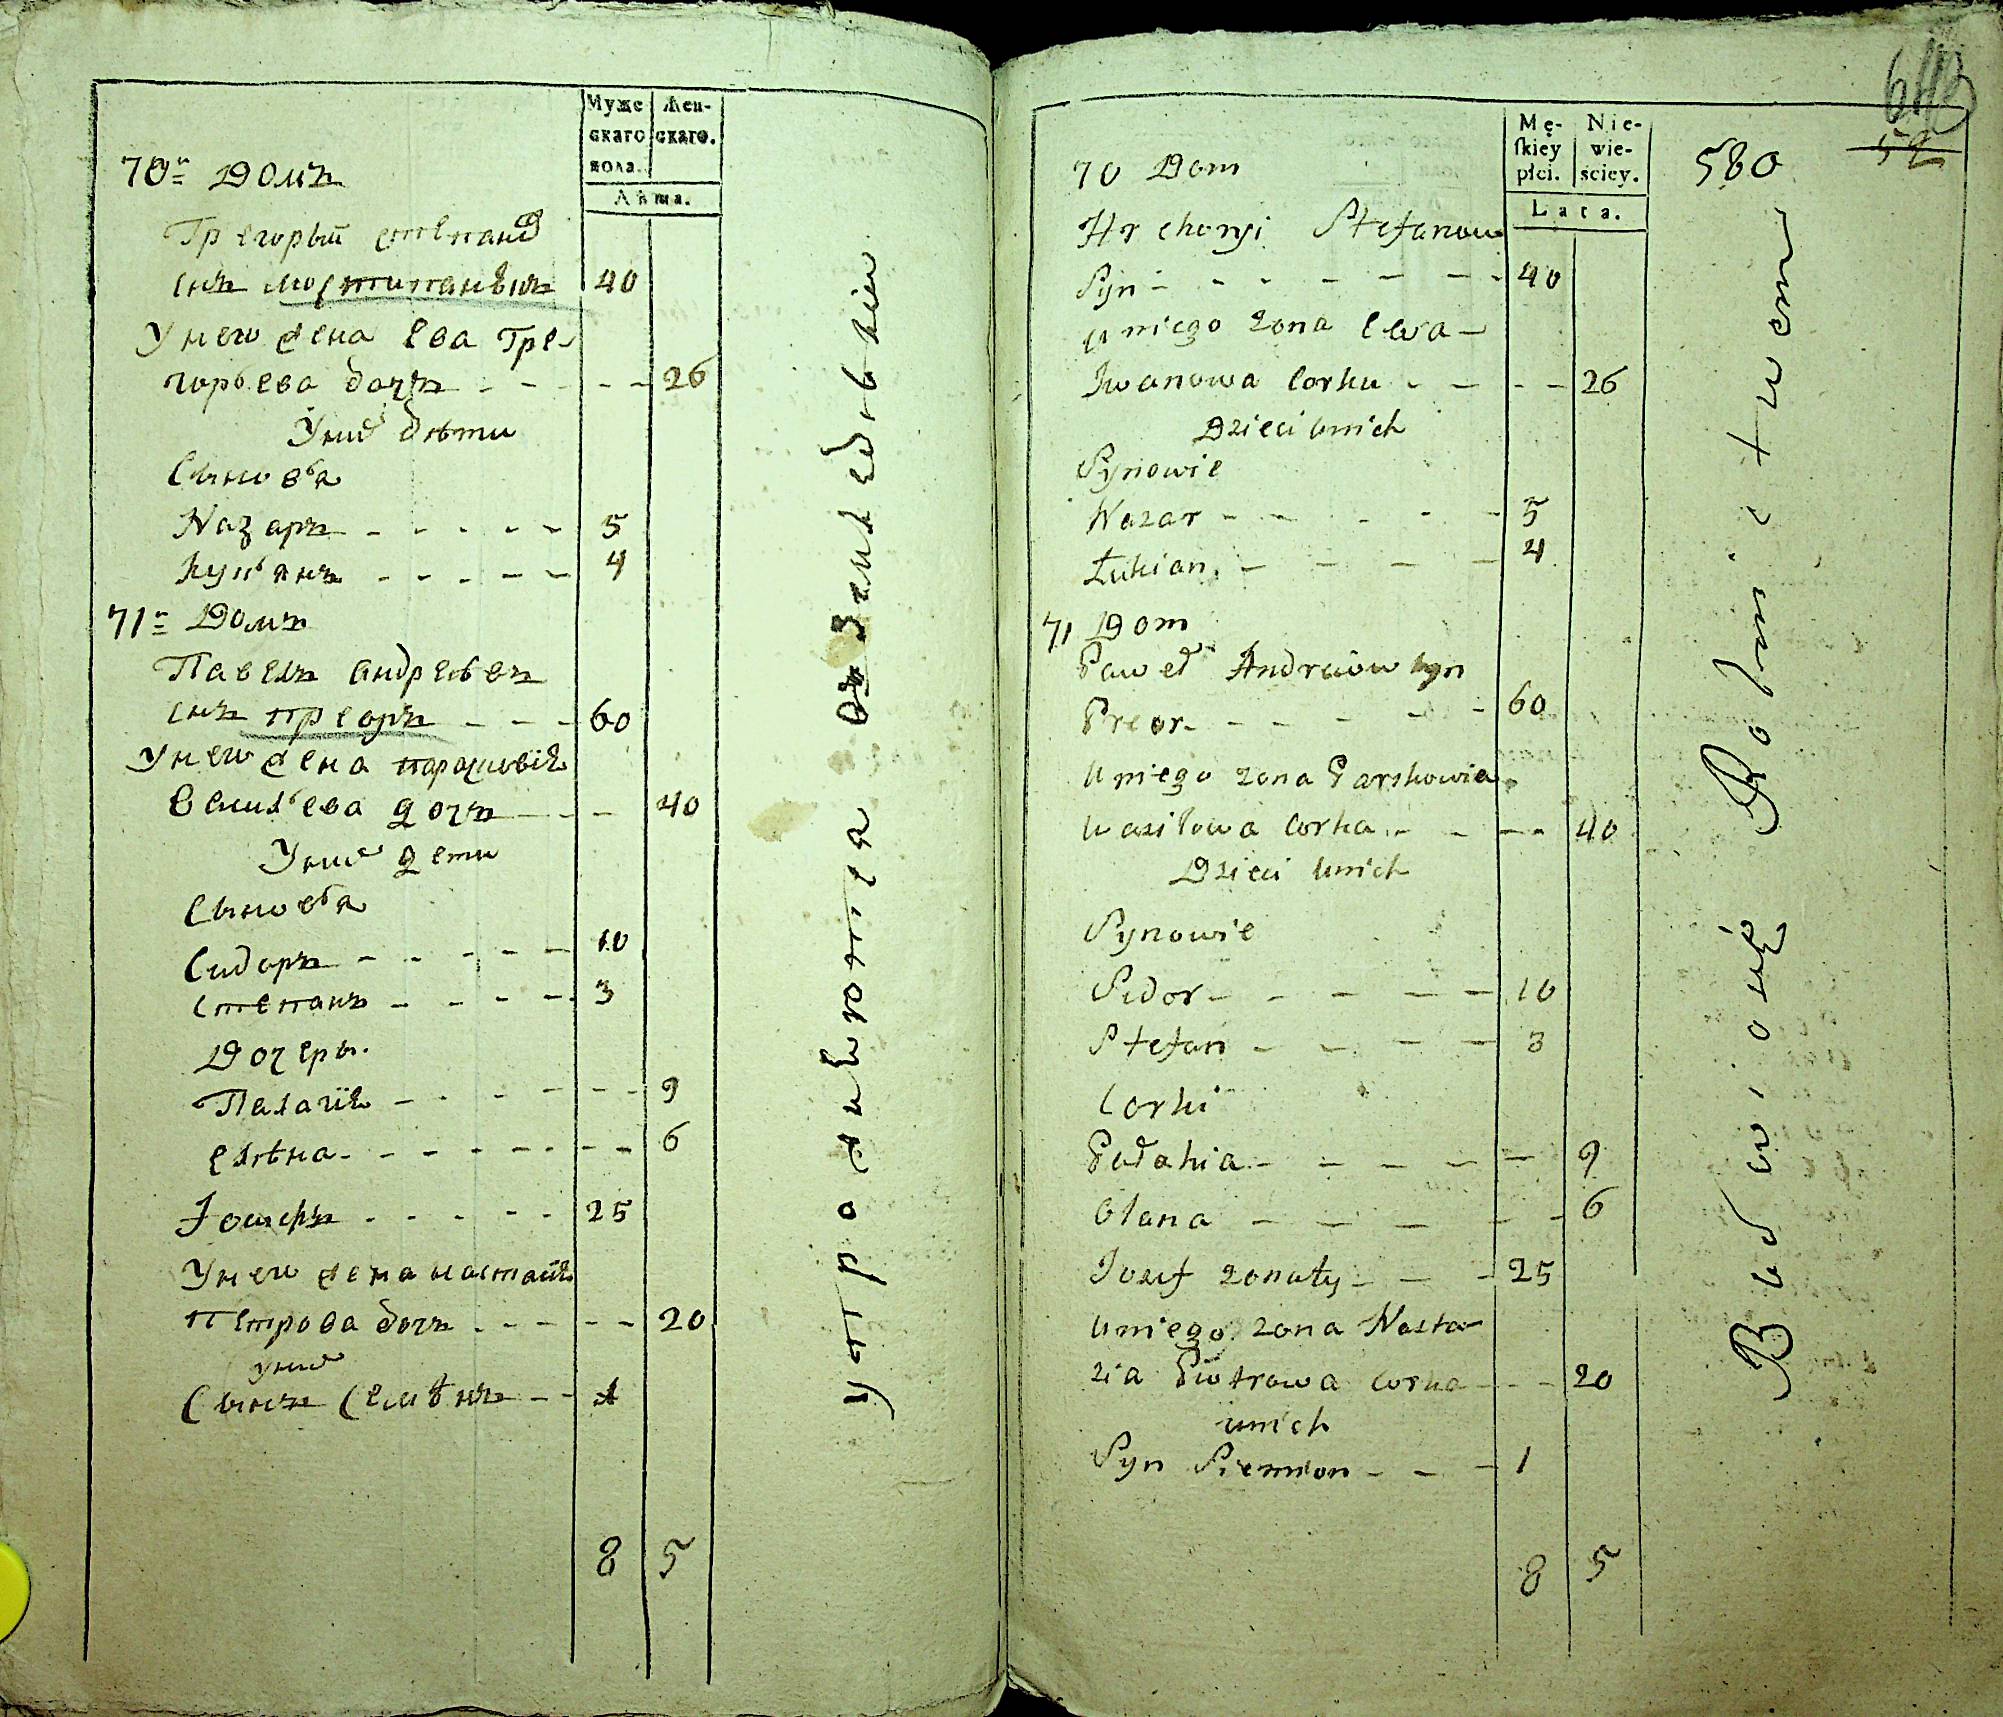 Муже
скаго
пола.
Жен-
скаго.
Лѣта.
70й Домъ
Грегорый степанов
снъ 40
У него жена Ева Гре-
горьева дочъ - - - - - 26
У них дѣти
Сыновья
Назаръ - - - - - 5
Лукьянъ - - - - - 4
71й Домъ
Павелъ Андреѣвъ
снъ преоръ - - - 60
У него жена парасковия
Васильева дочъ - - - 40
У них дети
Сыновья
Сидоръ - - - - - 10
степанъ - - - - - 3
Дочеры.
Палагия - - - - - - 9
елѣна - - - - - - - 6
Іосифъ - - - - - 25
У него жена настасия
Петрова дочъ - - - - - 20
у них
Сынъ Семѣнъ - - 1
8 5
упражняются въ земледѣлии
Mę-
skiey
płci.
Nie-
wie-
ściey.
Lata.
580
52
70 Dom
Hrehory Stefanow
Syn - - - - - - - 40
u niego żona Ewa -
Iwanowa Corka - - - - 26
Dzieci unich
Synowie
Nazar - - - - - 5
Łukian - - - - 4
71 Dom
Paweł Andreiow syn
Preor - - - - - - 60
u niego żona Parskowia
Wasilowa Corka - - - - 40
Dzieci unich
Synowie
Sidor - - - - - 10
Stefan - - - - - 3
Corki
Pałahia - - - - - - 9
Olana - - - - - 6
Iozef zonaty - - - 25
u niego zona Nasta-
zia Piotrowa corka - - - 20
unich
Syn Siemion - - - 1
8 5
Bawią się Rolnictwem